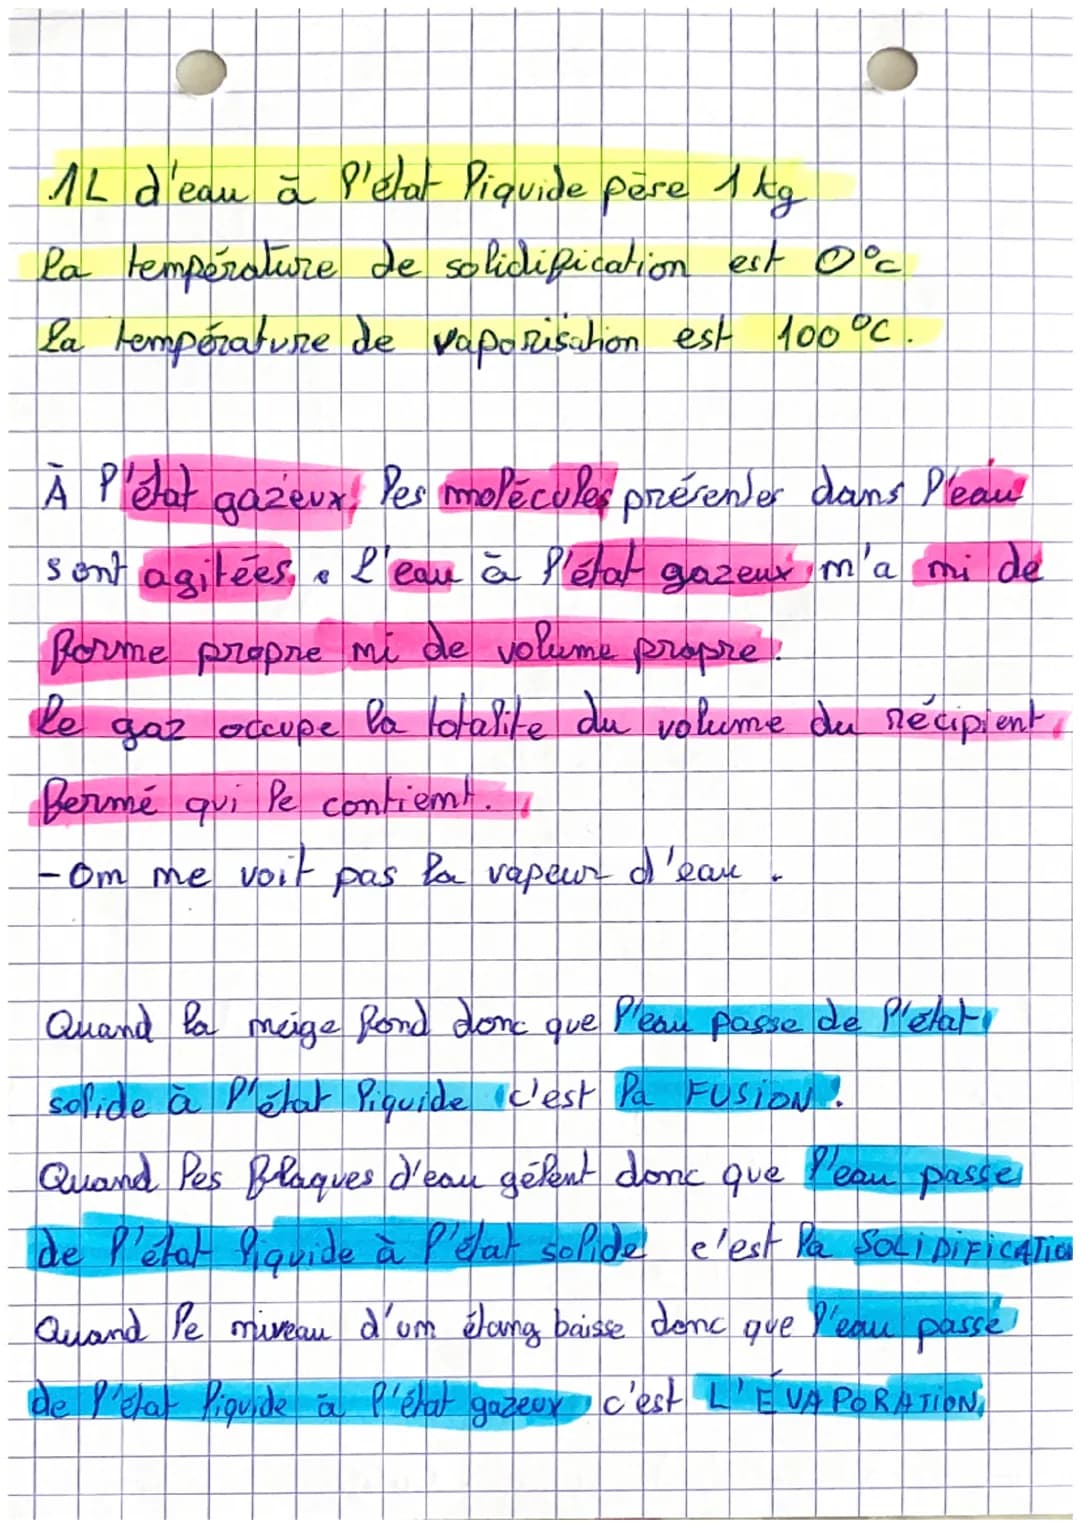 1L d'eau à l'état liquide pèse 1 kg
la température de solidification est 0°c
la température de vaporisation est 100°C.
À l'état gazeux, les molécules présentes dans l'eau
sont agitées. l'eau à l'état gazeux n'a ni de
forme propre ni de volume propre.
le gaz occupe la totalite du volume du récipient
fermé qui le contient.
-On ne voit pas la vapeur d'eau.
Quand la neige fond donc que l'eau passe de l'état
solide à l'état liquide c'est la FUSION.
Quand les flaques d'eau gèlent donc que l'eau passe
de l'état liquide à l'état solide c'est la SOLIDIFICATIO
Quand le niveau d'un étang baisse donc que l'eau passe
de l'état liquide à l'état gazeux c'est L'ÉVAPORATION,